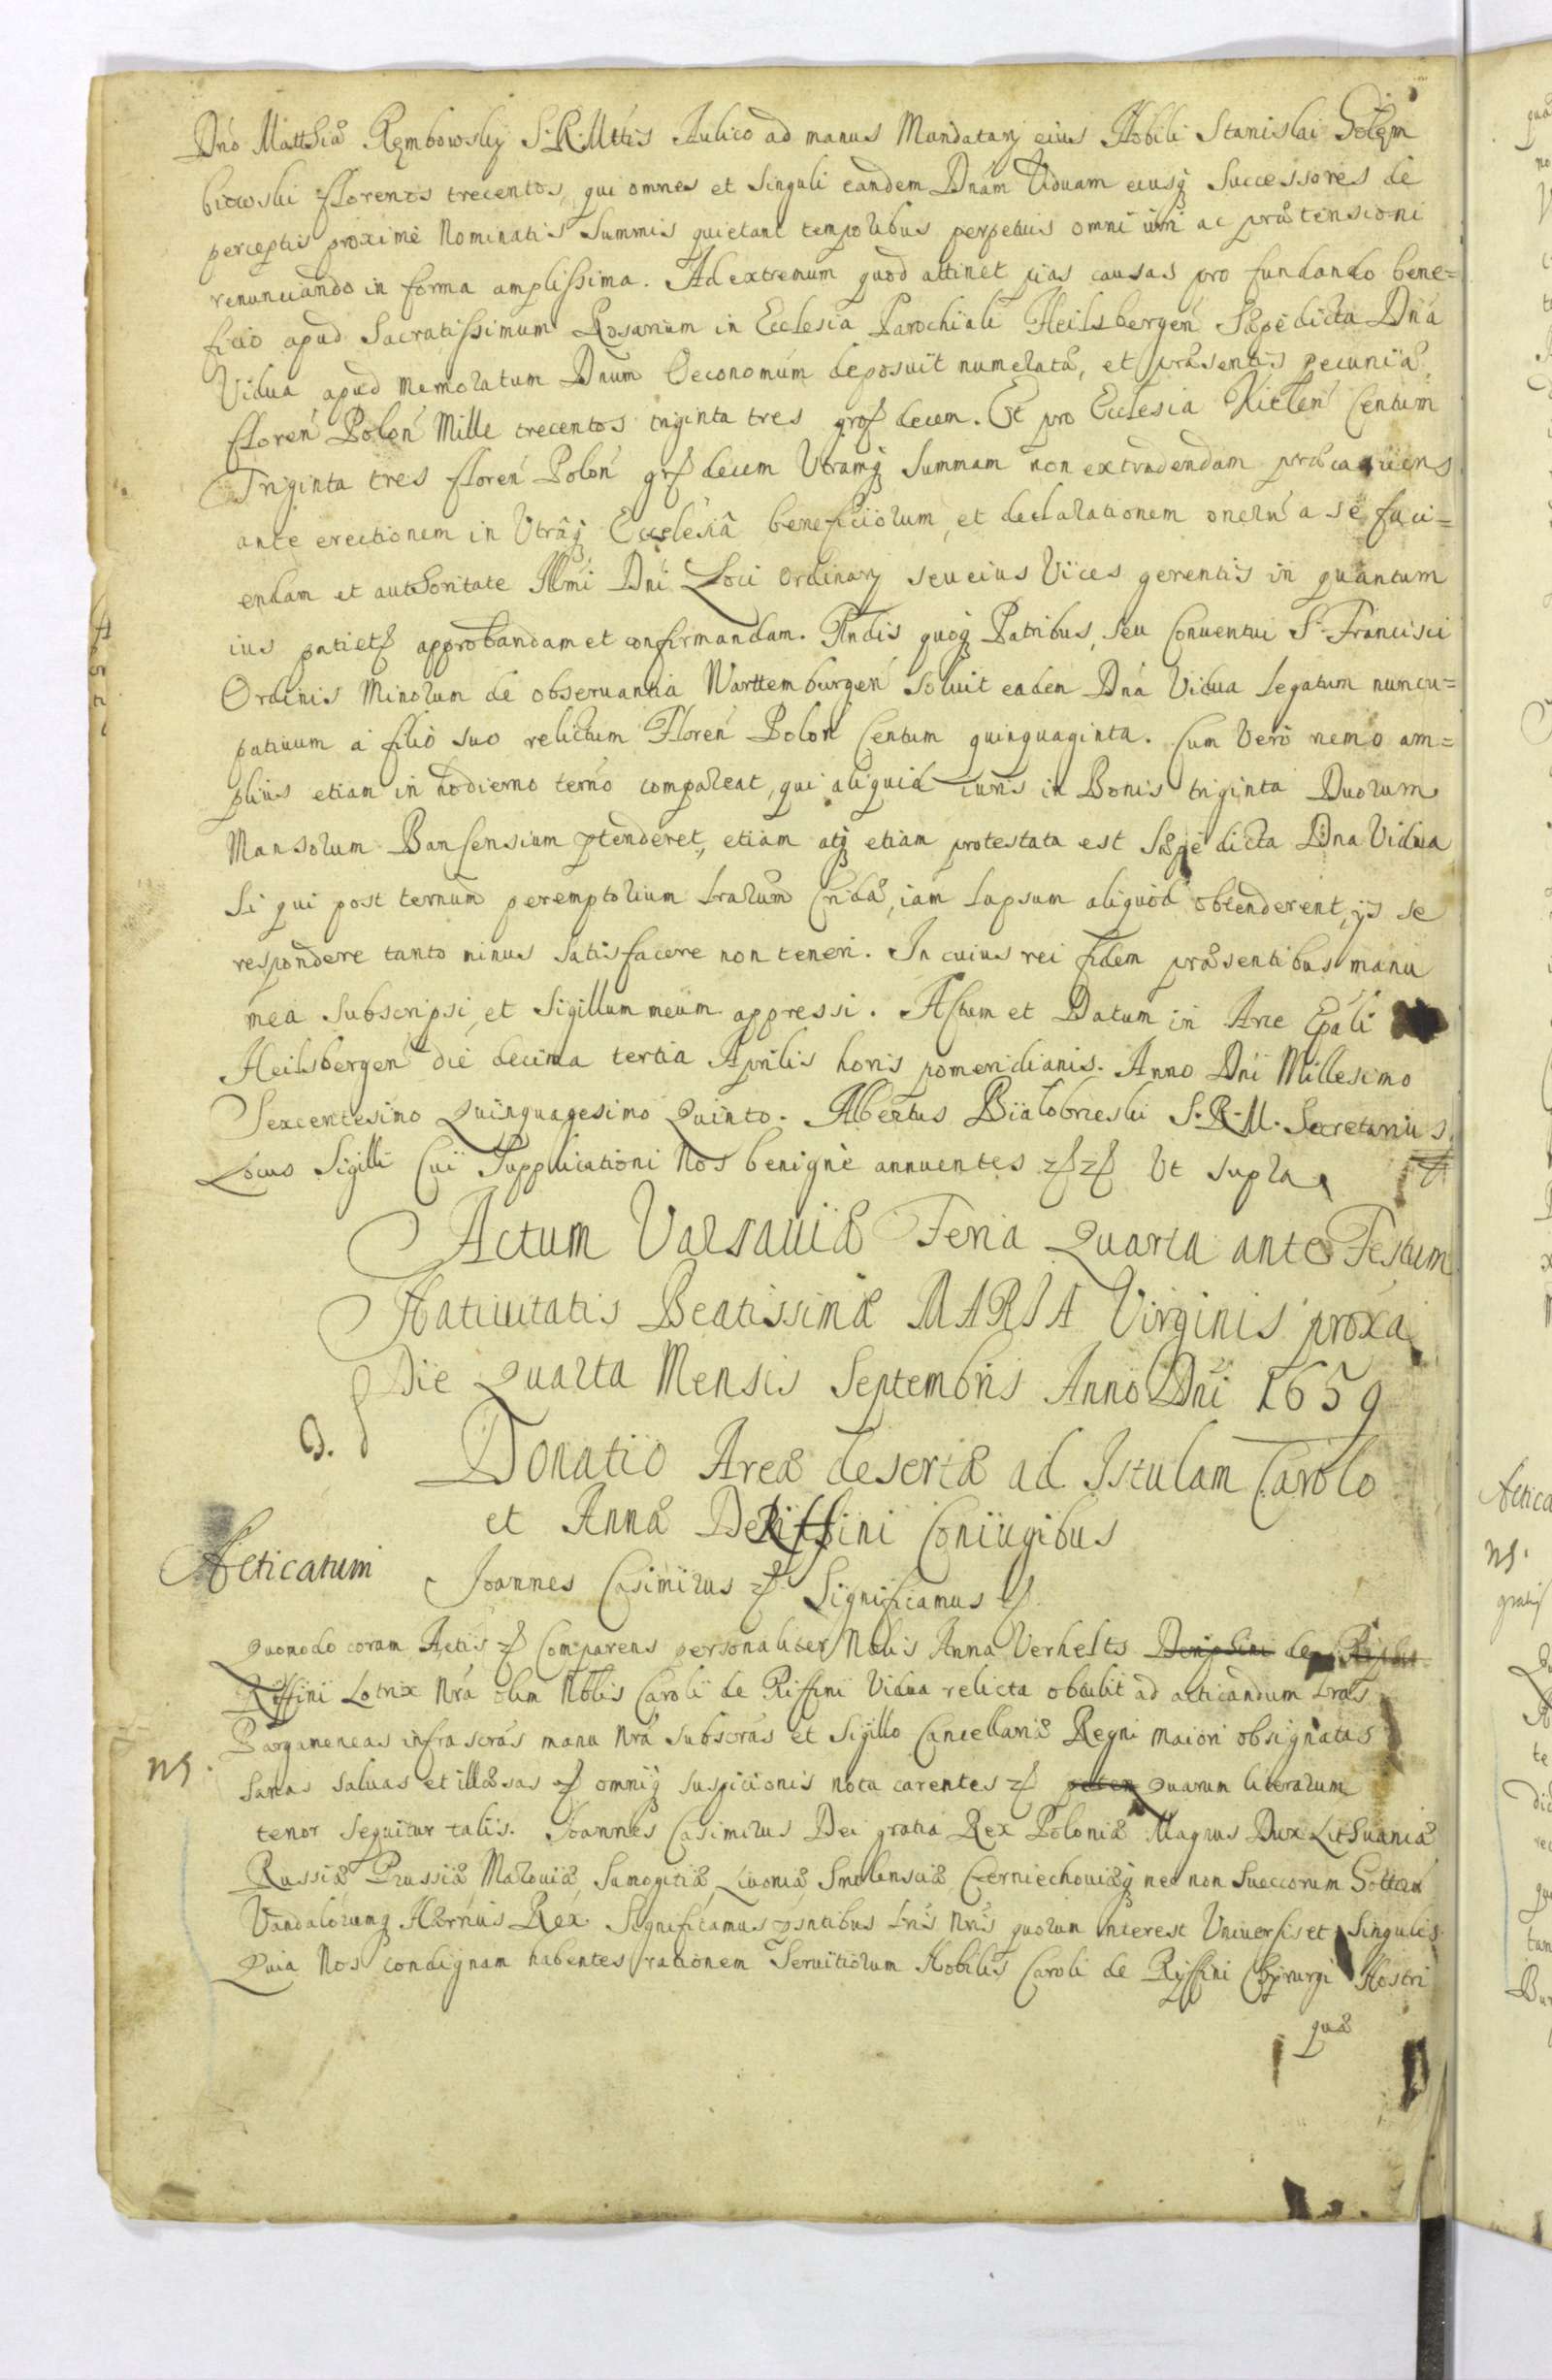 Dno Matthiæ Rembowsky S. R. Mttis Aulico ad manus Mandatarÿ eius Nobili Stanislai Gołem
biowski florenos trecentos, qui omnes et singuli eandem Dnam Viduam eiusq Successores de
perceptis proximè Nominatis Summis quietant temporibus perpetuis omni iuri ac prætensioni
renunciando in forma amplissima. Ad extremum quod attinet pias causas pro fundando bene=
ficio apud Sacratissimum Rosarium in Ecclesia Parochiali Heilsbergen Sæpe dicta Dna
Vidua apud memoratum Dnum Oeconomum deposuit numeratæ, et præsentis pecuniæ
floren Polon Mille trecentos triginta tres gros decem. Et pro Ecclesia Kitlen Centum
Triginta tres floren Polon grs decem Utramq Summam non extradendam præcauens
ante erectionem in Utrâq Ecclesiâ beneficiorum, et declarationem onerum a se faci=
endam et authoritate Illmi Dni Loci Ordinarÿ seu eius Vices gerentis in quantum
ius patietr approbandam et confirmandam. Pndis quoq Patribus, seu Conuentui S. Francisci
Ordinis Minorum de obseruantia Warttemburgen soluit eadem Dna Vidua legatum nuncu=
patiuum a filio suo relictum Floren Polon Centum quinquaginta. Cum Verò nemo am=
plius etiam in hodierno terno compareat, qui aliquid iuris in Bonis triginta Duorum
Mansorum Bansensium ptenderet, etiam atq etiam protestata est Sæpe dicta Dna Vidua
Si qui post ternum peremptorium lrarum Cridæ, iam lapsum aliquod obtenderent, ÿs se
respondere tanto minus satisfacere non teneri. In cuius rei fidem præsentibus manu
mea subscripsi, et Sigillum meum appressi. Actum et Datum in Arce Epali
Heilsbergen die decima tertia Aprilis horis pomeridianis. Anno Dni Millesimo
Sexcentesimo Quinquagesimo Quinto. Albertus Białobrzeski S. R. M. Secretarius
Locus Sigilli Cui Supplicationi Nos benignè annuentes etc etc Ut supra
Actum Varsauiæ Feria Quarta ante Festum
Natiuitatis Beatissimæ MARIA Virginis proxa
Die Quarta Mensis Septembris Anno Dni 1659
D.
Donatio Areæ desertæ ad Istulam Carolo
et Annæ De Riffini Coniugibus
Acticatum
Joannes Casimirus etc Significamus etc
Quomodo coram Actis etc Comparens personaliter Nblis Anna Verhelts de
Riffini Lotrix Nra olim Nblis Caroli de Riffini Vidua relicta obtulit ad acticandum lras
Pargameneas infrascras manu Nra subscras et Sigillo Cancellariæ Regni maiori obsignatas
NS.
sanas saluas et illæsas etc omniq suspicionis nota carentes etc Quarum literarum
tenor sequitur talis. Joannes Casimirus Dei gratia Rex Poloniæ Magnus Dux Lithuaniæ
Russiæ Prussiæ Mazouiæ, Samogitiæ, Liuoniæ Smolensciæ Czerniechouiæq nec non Sueccorum Gottorum
Vandalorumq Hærrius Rex. Significamus pntibus lris Nris quorum interest Uniuersis et Singulis
Quia Nos condignam habentes rationem Seruitiorum Nobilis Caroli de Riffini Chyrurgi Nostri
quæ